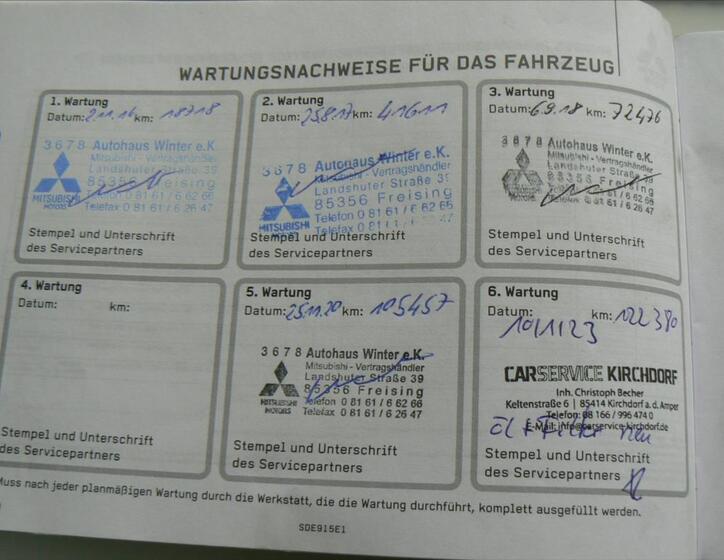 WARTUNGSNACHWEISE FÜR DAS FAHRZEUG
1. Wartung
Datum: 2.11.16 km: 18718
3678 Autohaus Winter e.K.
Mitsubishi - Vertragshändler
Landshuter Straße 39
85356 Freising
MITSUBISHI MOTORS
Telefon 0 81 61 / 6 62 66
Telefax 0 81 61 / 6 26 47
Stempel und Unterschrift
des Servicepartners
2. Wartung
Datum: 25.8.17 km: 41611
3678 Autohaus Winter e.K.
Mitsubishi - Vertragshändler
Landshuter Straße 39
85356 Freising
MITSUBISHI MOTORS
Telefon 0 81 61 / 6 62 66
Telefax 0 81 61 / 6 26 47
Stempel und Unterschrift
des Servicepartners
3. Wartung
Datum: 6.9.18 km: 72476
3678 Autohaus Winter e.K.
Mitsubishi - Vertragshändler
Landshuter Straße 39
85356 Freising
Stempel und Unterschrift
des Servicepartners
4. Wartung
Datum: km:
Stempel und Unterschrift
des Servicepartners
5. Wartung
Datum: 25.11.20 km: 105457
3678 Autohaus Winter e.K.
Mitsubishi - Vertragshändler
Landshuter Straße 39
85356 Freising
MITSUBISHI MOTORS
Telefon 0 81 61 / 6 62 66
Telefax 0 81 61 / 6 26 47
Stempel und Unterschrift
des Servicepartners
6. Wartung
Datum: km: 122380
10/1/23
CARSERVICE KIRCHDORF
Inh. Christoph Becher
Keltenstraße 6 | 85414 Kirchdorf a. d. Amper
Telefon: 08 166 / 996 474 0
E-Mail: info@carservice-kirchdorf.de
Öl + Filter neu
Stempel und Unterschrift
des Servicepartners
Muss nach jeder planmäßigen Wartung durch die Werkstatt, die die Wartung durchführt, komplett ausgefüllt werden.
SDE915E1